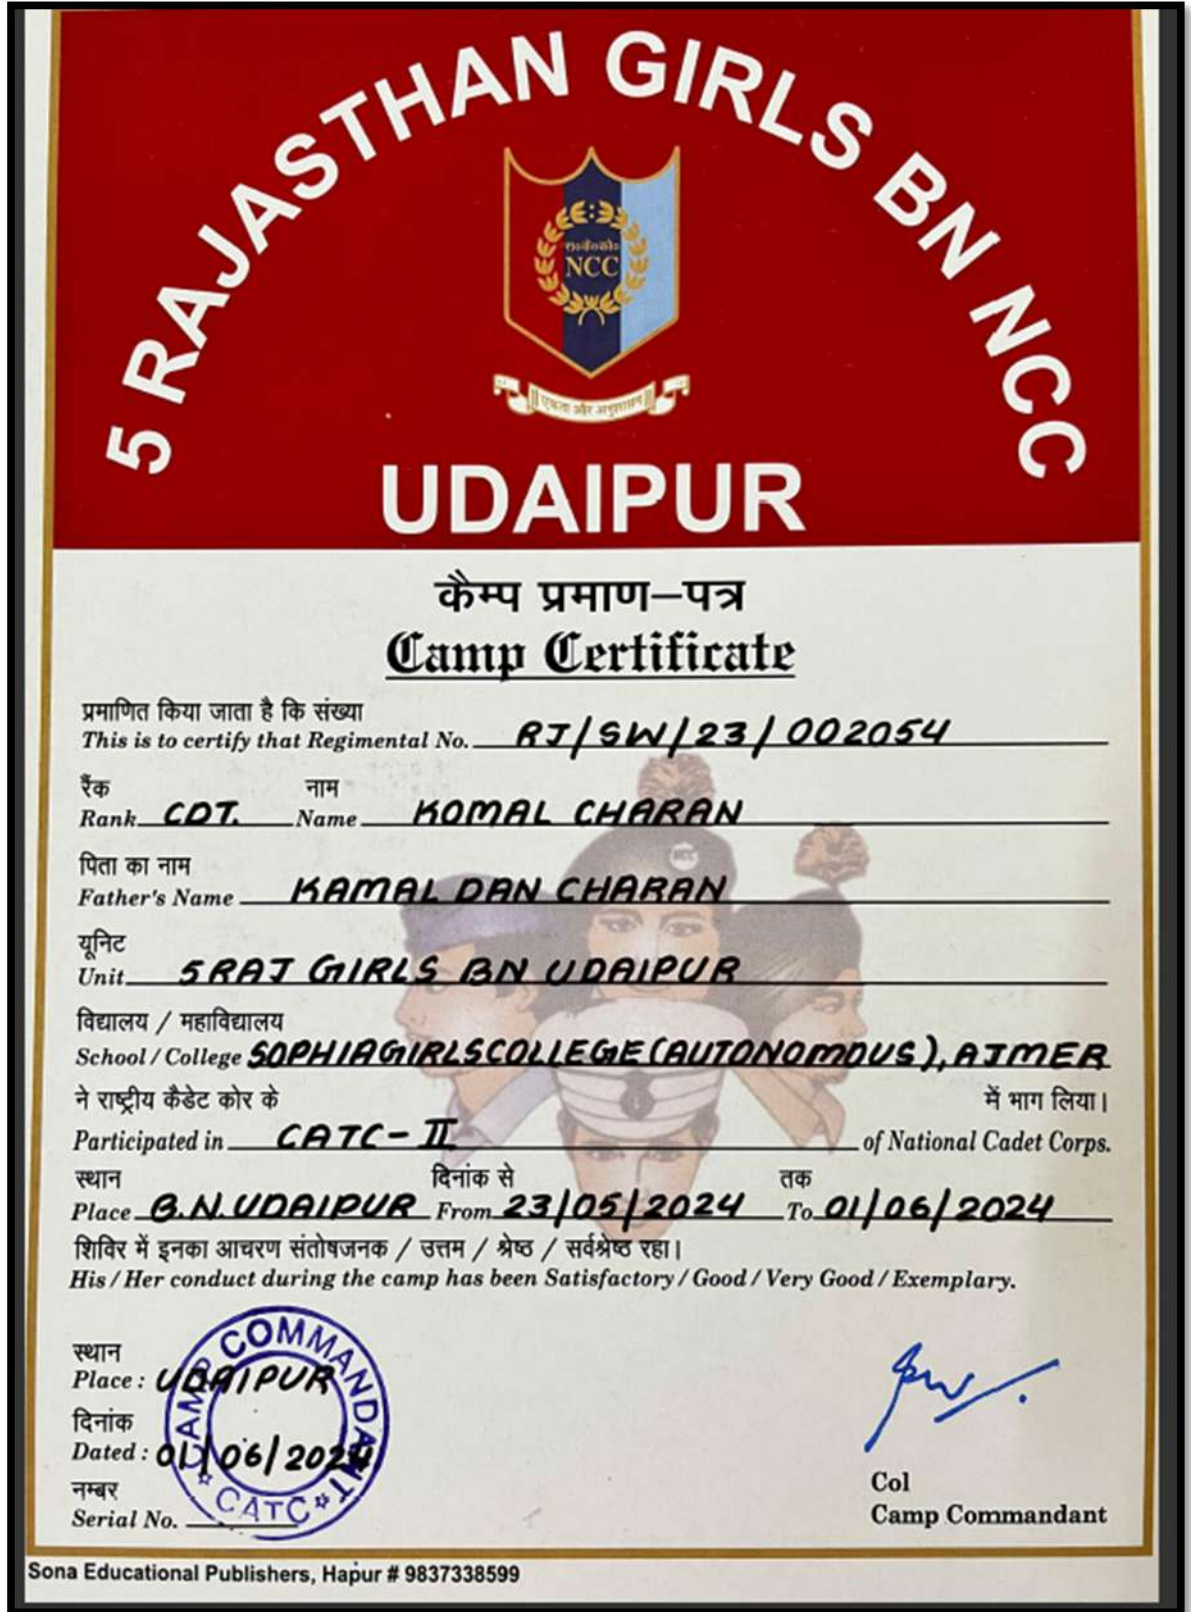 5 RAJASTHAN GIRLS BN NCC
रा॰कै॰को॰
NCC
एकता और अनुशासन
UDAIPUR
कैम्प प्रमाण–पत्र
Camp Certificate
प्रमाणित किया जाता है कि संख्या
This is to certify that Regimental No. RJ/SW/23/002054
रैंक नाम
Rank CDT. Name KOMAL CHARAN
पिता का नाम
Father's Name KAMAL DAN CHARAN
यूनिट
Unit 5 RAJ GIRLS BN UDAIPUR
विद्यालय / महाविद्यालय
School / College SOPHIA GIRLS COLLEGE (AUTONOMOUS), AJMER
ने राष्ट्रीय कैडेट कोर के में भाग लिया।
Participated in CATC-II of National Cadet Corps.
स्थान दिनांक से तक
Place B.N. UDAIPUR From 23/05/2024 To 01/06/2024
शिविर में इनका आचरण संतोषजनक / उत्तम / श्रेष्ठ / सर्वश्रेष्ठ रहा।
His / Her conduct during the camp has been Satisfactory / Good / Very Good / Exemplary.
स्थान
Place : UDAIPUR
दिनांक
Dated : 01/06/2024
नम्बर
Serial No.
CAMP COMMANDANT
CATC
Col
Camp Commandant
Sona Educational Publishers, Hapur # 9837338599